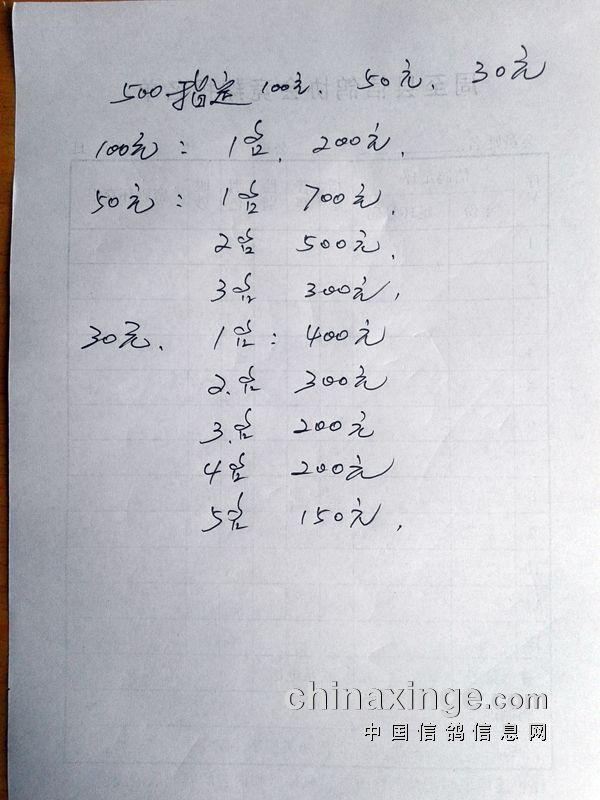 500指定100元. 50元. 30元
100元: 1名. 200元.
50元: 1名 700元.
2名 500元.
3名 300元,
30元. 1名: 400元
2.名 300元
3.名 200元
4名 200元
5名 150元,
chinaxinge.com
中国信鸽信息网